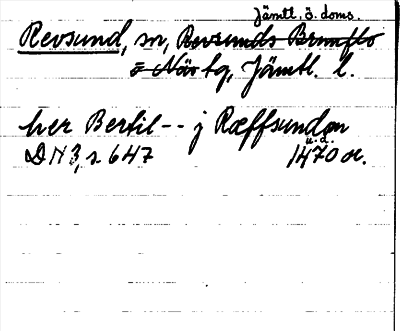 Jämtl. ö. doms.
Revsund, sn, Revsunds Brunflo
o När tg, Jämtl. l.
her Bertil -- j Ræffsundom
u. d.
DN 3, s 647 1470 or.